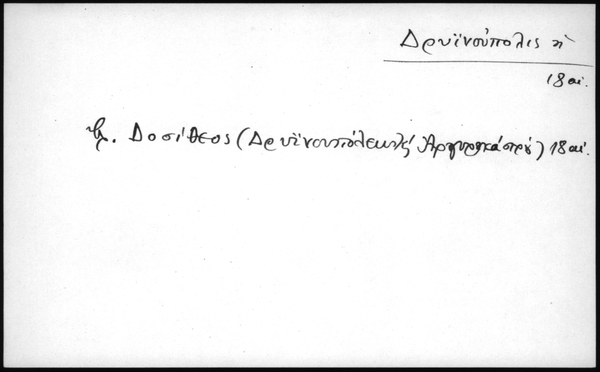 Δρυϊνούπολις ἡ
18 αἰ.
Δοσίθεος (Δρυϊνουπόλεως κ' Ἀργυροκάστρου) 18 αἰ.